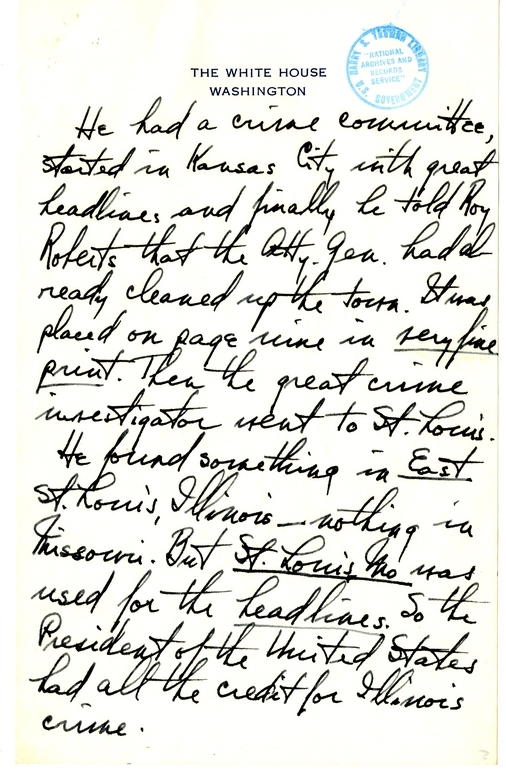 THE WHITE HOUSE
WASHINGTON
HARRY S. TRUMAN LIBRARY
"NATIONAL
ARCHIVES AND
RECORDS
SERVICE"
U.S. GOVERNMENT
He had a crime committee,
started in Kansas City with great
headlines and finally he told Roy
Roberts that the Atty. Gen. had al-
ready cleaned up the town. It was
placed on page nine in very fine
print. Then the great crime
investigator went to St. Louis.
He found something in East
St. Louis, Illinois—nothing in
Missouri. But St. Louis, Mo was
used for the headlines. So the
President of the United States
had all the credit for Illinois
crime.